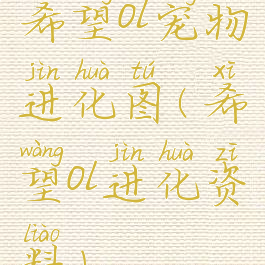 希望ol宠物
jìn huà tú xī
进化图(希
wàng jìn huà zī
望ol进化资
liào
料)